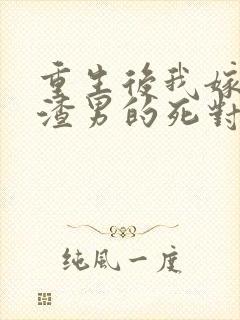 重生後我嫁
渣男的死對
純風一度